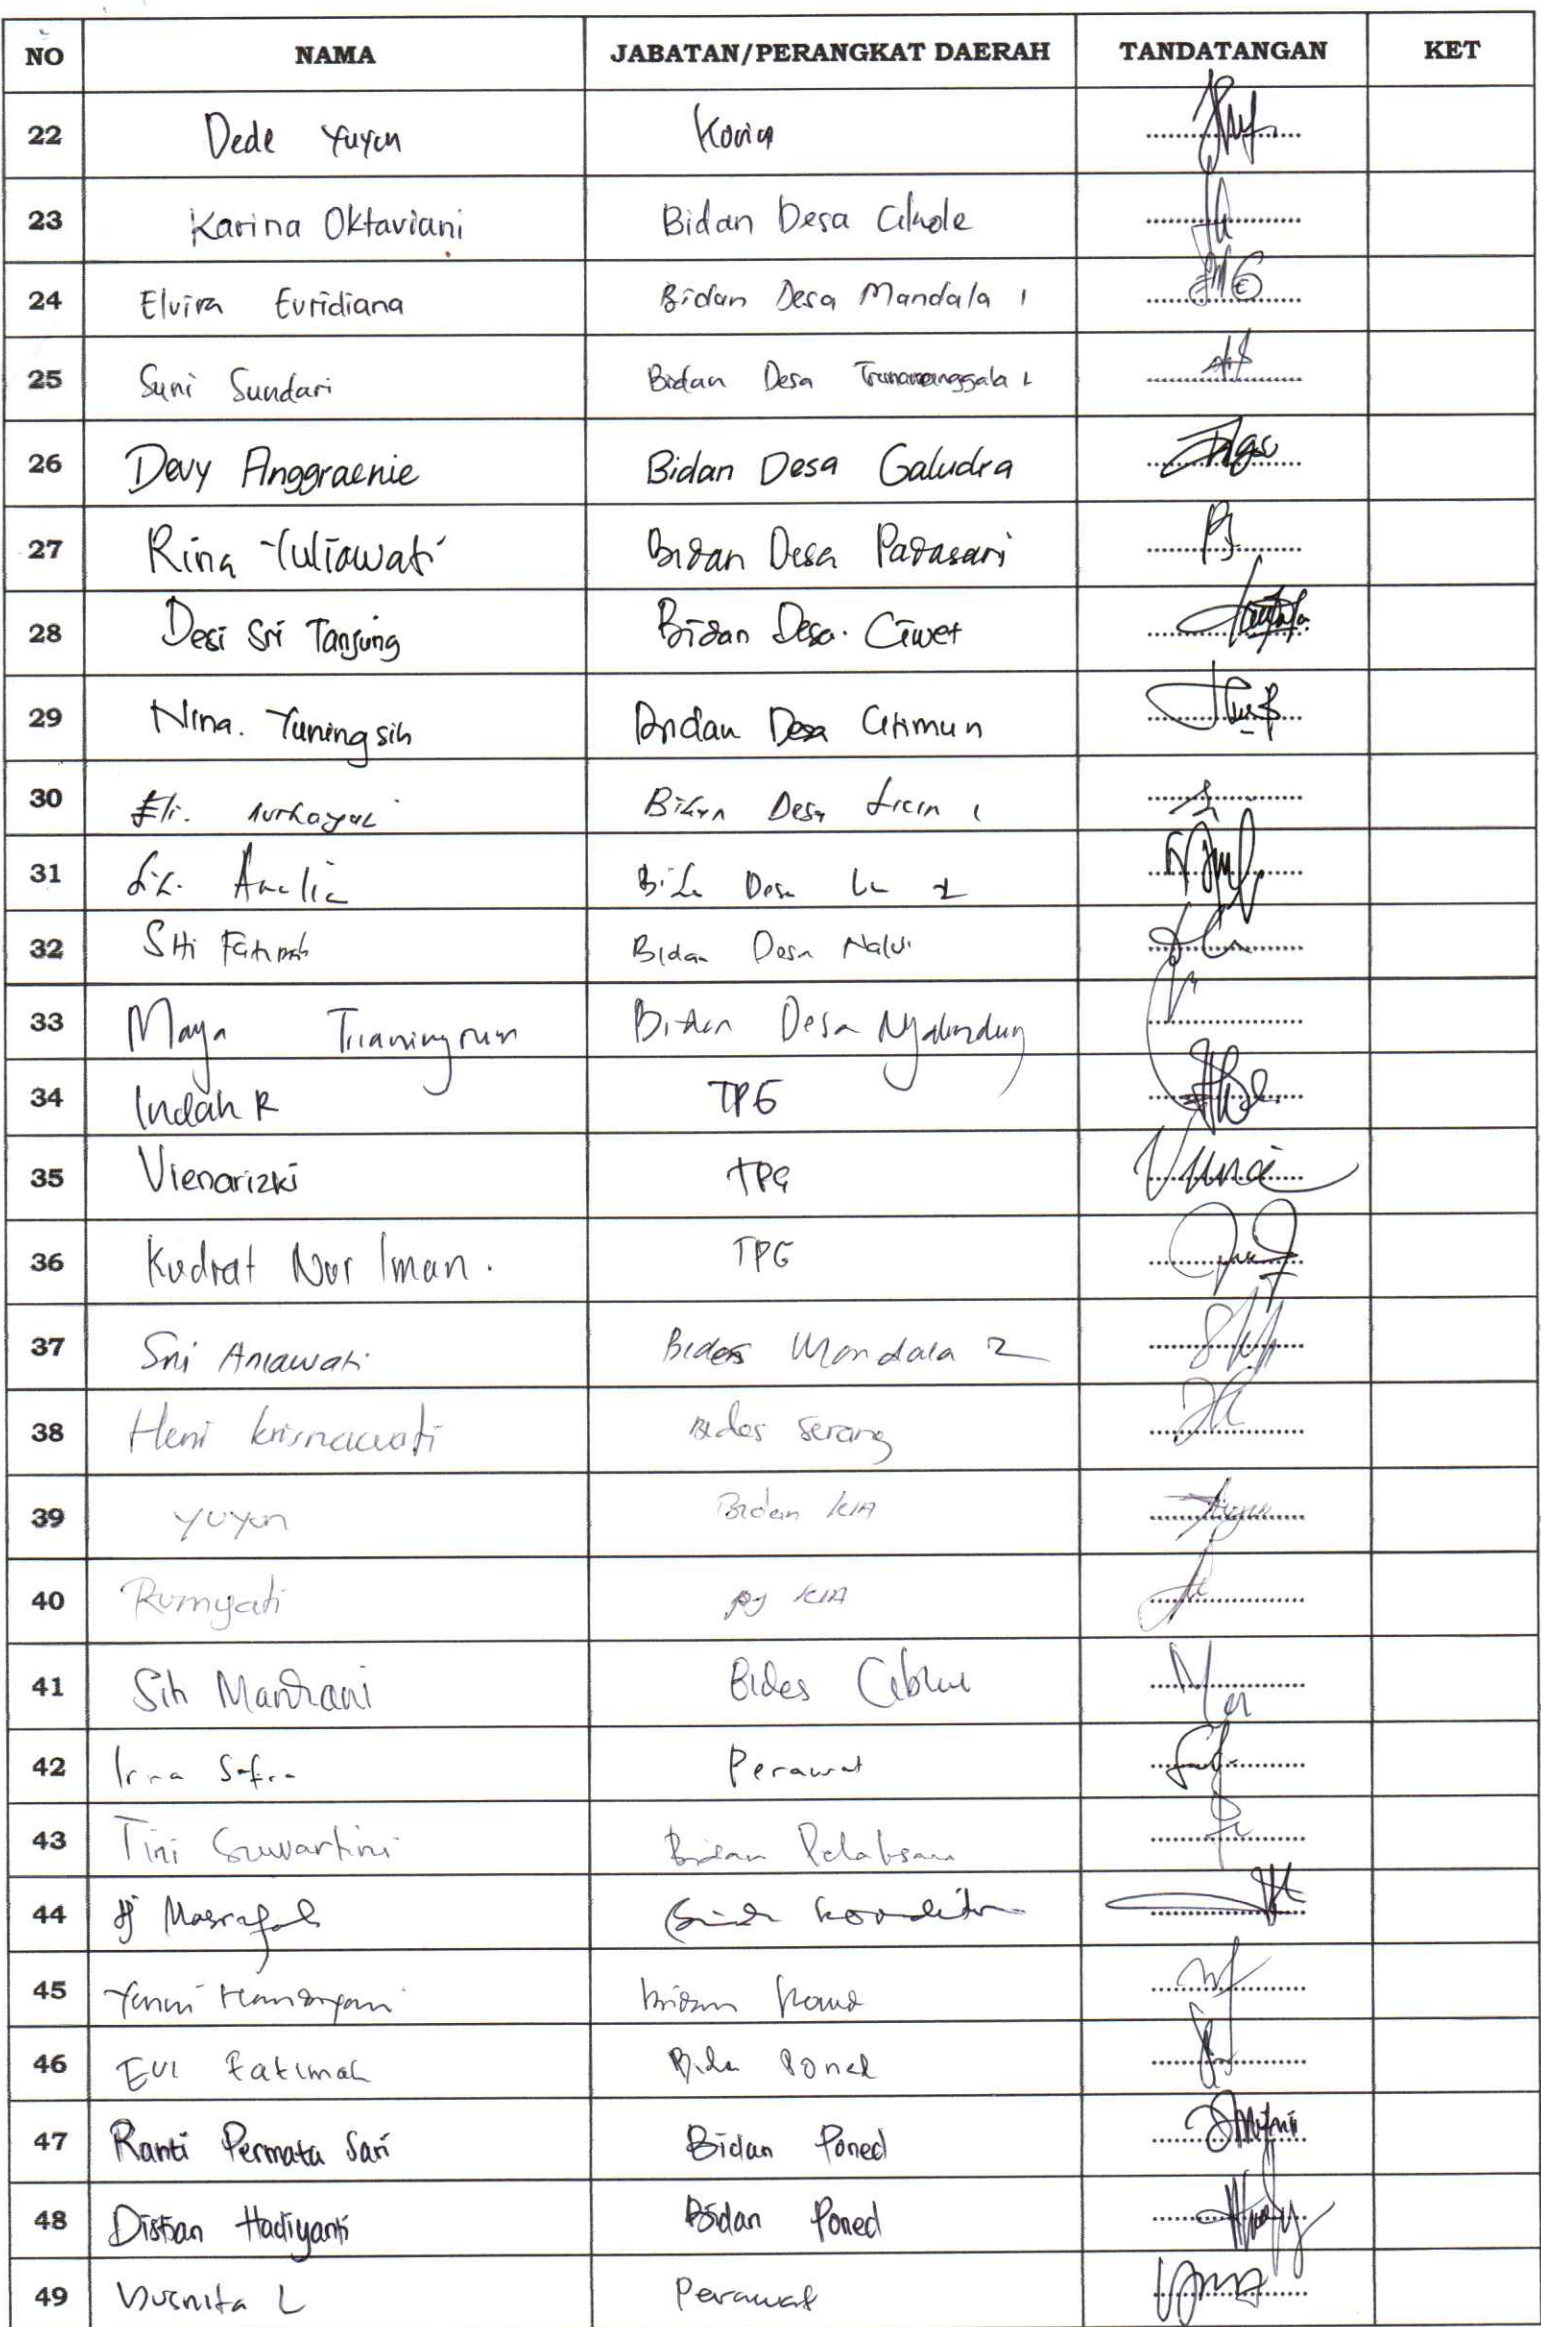 NO NAMA JABATAN/PERANGKAT DAERAH TANDATANGAN KET
22 Dede Yuyun
23 Karina Oktaviani Bidan Desa Cikole
24 Elvira Evridiana Bidan Desa Mandala 1
25 Suni Sundari Bidan Desa
26 Devy Anggraenie Bidan Desa Galudra
27 Rina Yuliawati Bidan Desa Padasari
28 Desi Sri Tanjung Bidan Desa. Ciwet
29 Nina. Yuningsih Bidan Desa Citimun
30 Eli. Nurhayati Bidan Desa Licin 1
31 Amelia Desa 2
32 Siti Fatimah Bidan Desa Naluk
33 Maya Trianingrum Bidan Desa Nyalindung
34 Indah R TPG
35 Vienarizki TPG
36 Kudrat Nur Iman. TPG
37 Sri Aniawati Bides Mandala 2
38 Heni krisnawati Bides Serang
39 Yuyun Bidan KIA
40 Rumyati pj KIA
41 Siti Bides
42 Irna Perawat
43 Tini Suwartini Bidan Pelaksana
44 Hj
45 Bidan
46 Evi Fatimah Bidan Poned
47 Ranti Permata Sari Bidan Poned
48 Distian Hadiyanti Bidan Poned
49 Yusnita L Perawat